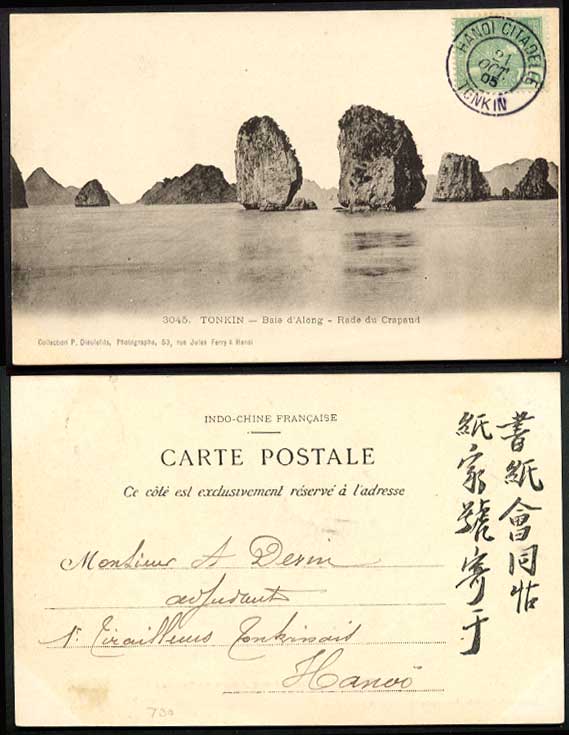 HANOI CITADELLE
21
OCT.
05
TONKIN
3045. TONKIN — Baie d'Along - Rade du Crapaud
Collection P. Dieulefils, Photographe, 53, rue Jules Ferry à Hanoi
INDO-CHINE FRANÇAISE
CARTE POSTALE
Ce côté est exclusivement réservé à l'adresse
Monsieur A Derin
adjudant
1r Tirailleurs Tonkinais
Hanoï
書紙會同
紙家號寄于
730